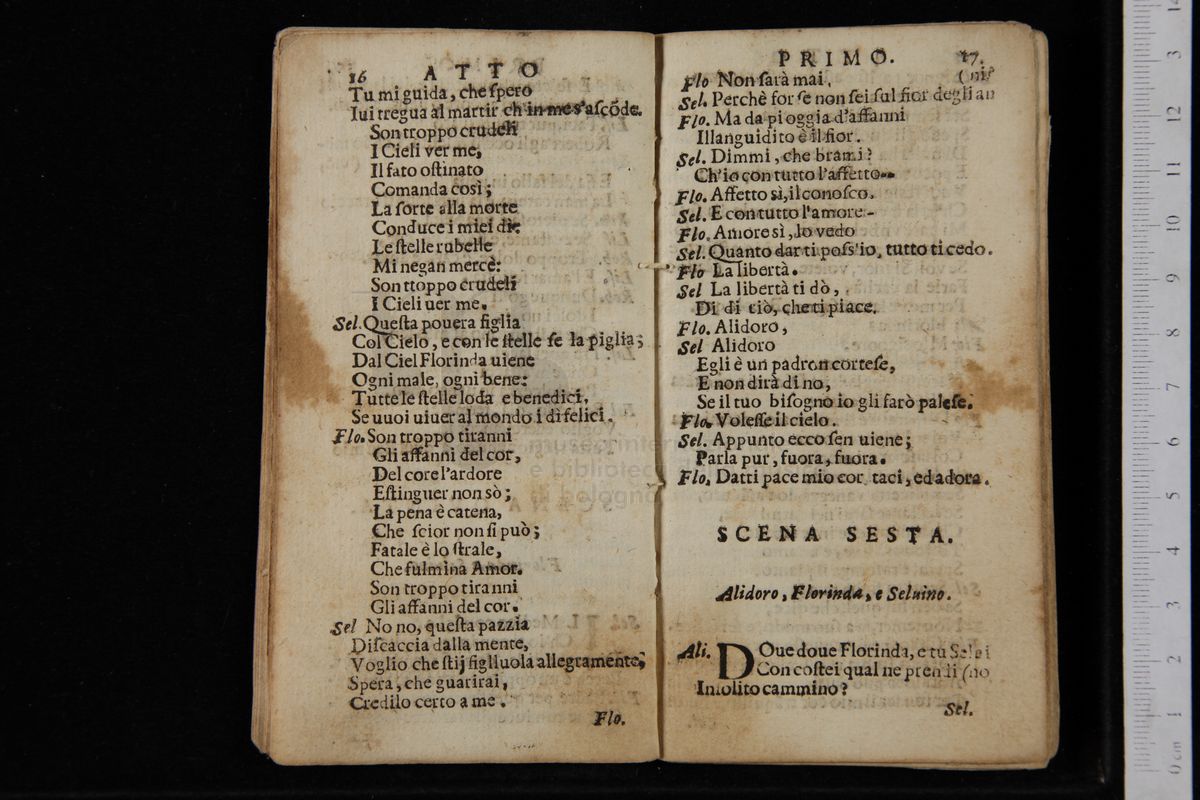 16 ATTO
Tu mi guida, che spero
Iui tregua al martir ch'in me s'ascõde.
Son troppo crudeli
I Cieli ver me,
Il fato ostinato
Comanda così;
La sorte alla morte
Conduce i miei dì:
Le stelle rubelle
Mi negan mercè:
Son ttoppo crudeli
I Cieli uer me.
Sel. Questa pouera figlia
Col Cielo, e con le stelle se la piglia;
Dal Ciel Florinda uiene
Ogni male, ogni bene:
Tutte le stelle loda e benedici,
Se uuoi uiuer al mondo i dì felici.
Flo. Son troppo tiranni
Gli affanni del cor,
Del core l'ardore
Estinguer non sò;
La pena è catena,
Che scior non si può;
Fatale è lo strale,
Che fulmina Amor.
Son troppo tiranni
Gli affanni del cor.
Sel No no, questa pazzia
Discaccia dalla mente,
Voglio che stij figliuola allegramente;
Spera, che guarirai,
Credilo certo a me.
Flo.
PRIMO. 17.
Flo Non sarà mai. (ni?
Sel. Perchè forse non sei sul fior degli an
Flo. Ma da pioggia d'affanni
Illanguidito è il fior.
Sel. Dimmi, che brami?
Ch'io con tutto l'affetto--
Flo. Affetto sì, il conosco.
Sel. E con tutto l'amore-
Flo. Amore sì, lo vedo
Sel. Quanto dar ti poss'io, tutto ti cedo.
Flo La libertà.
Sel La libertà ti dò,
Di di ciò, che ti piace.
Flo. Alidoro,
Sel Alidoro
Egli è un padron cortese,
E non dirà di no,
Se il tuo bisogno io gli farò palese.
Flo. Volesse il cielo.
Sel. Appunto ecco sen uiene;
Parla pur, fuora, fuora.
Flo. Datti pace mio cor, taci, ed adora.
SCENA SESTA.
Alidoro, Florinda, e Seluino.
Ali. DOue doue Florinda, e tù Selui
Con costei qual ne prendi (no
Insolito cammino?
Sel.
museo inter
e bibliotec
di bologna
0 cm 1 2 3 4 5 6 7 8 9 10 11 12 13 14